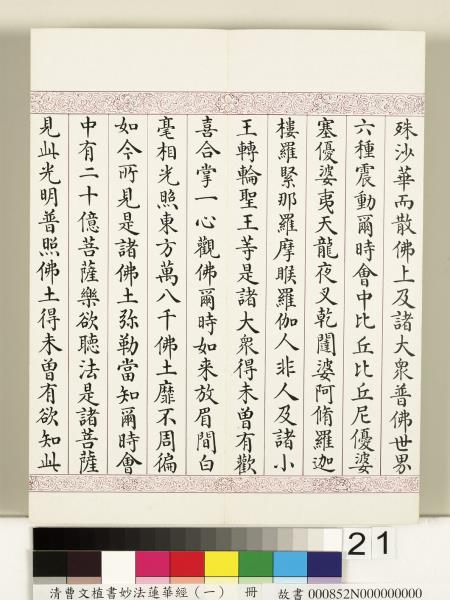 殊沙華而散佛上及諸大衆普佛世界
六種震動爾時會中比丘比丘尼優婆
塞優婆夷天龍夜叉乾闥婆阿脩羅迦
樓羅緊那羅摩睺羅伽人非人及諸小
王轉輪聖王等是諸大衆得未曾有歡
喜合掌一心觀佛爾時如來放眉間白
毫相光照東方萬八千佛土靡不周徧
如今所見是諸佛土弥勒當知爾時會
中有二十億菩薩樂欲聽法是諸菩薩
見此光明普照佛土得未曾有欲知此
21
清曹文植書妙法蓮華經(一) 冊 故書 000852N000000000